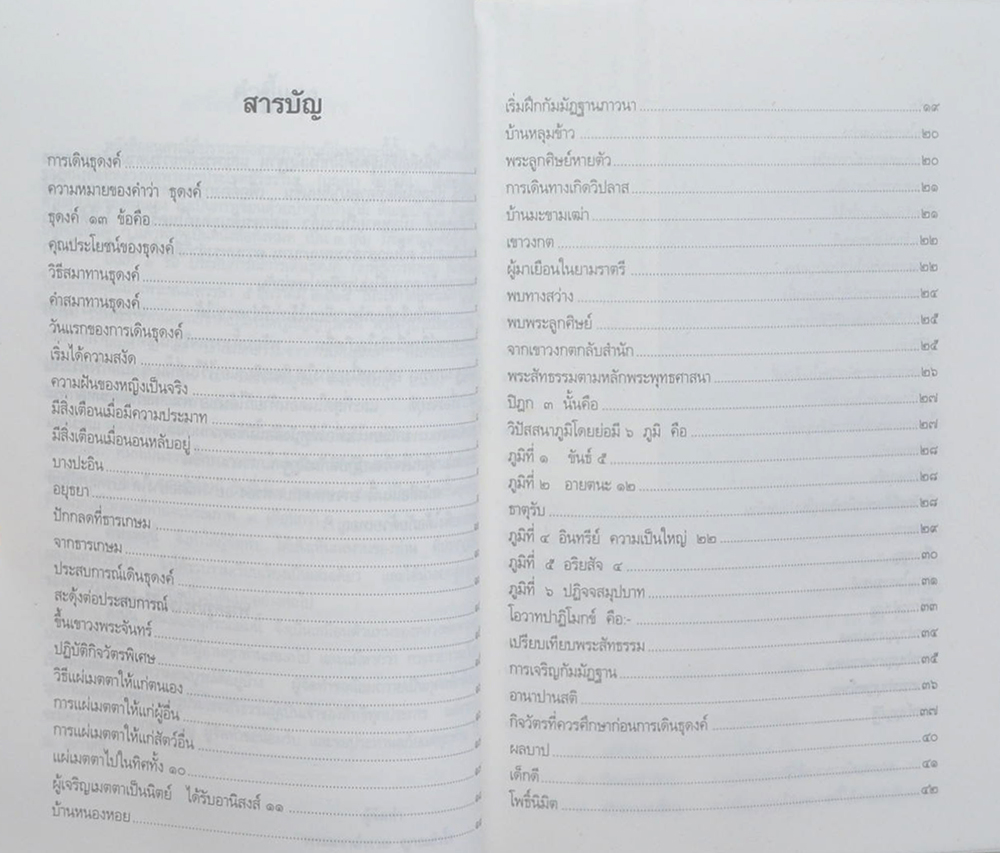 สารบัญ
การเดินธุดงค์
ความหมายของคำว่า ธุดงค์
ธุดงค์ ๑๓ ข้อคือ
คุณประโยชน์ของธุดงค์
วิธีสมาทานธุดงค์
คำสมาทานธุดงค์
วันแรกของการเดินธุดงค์
เริ่มได้ความสงัด
ความฝันของหญิงเป็นจริง
มีสิ่งเตือนเมื่อมีความประมาท
มีสิ่งเตือนเมื่อนอนหลับอยู่
บางปะอิน
อยุธยา
ปักกลดที่ธารเกษม
จากธารเกษม
ประสบการณ์เดินธุดงค์
สะดุ้งต่อประสบการณ์
ขึ้นเขาวงพระจันทร์
ปฏิบัติกิจวัตรพิเศษ
วิธีแผ่เมตตาให้แก่ตนเอง
การแผ่เมตตาให้แก่ผู้อื่น
การแผ่เมตตาให้แก่สัตว์อื่น
แผ่เมตตาไปในทิศทั้ง ๑๐
ผู้เจริญเมตตาเป็นนิตย์ ได้รับอานิสงส์ ๑๑
บ้านหนองหอย
เริ่มฝึกกัมมัฏฐานภาวนา ๑๙
บ้านหลุมข้าว ๒๐
พระลูกศิษย์หายตัว ๒๐
การเดินทางเกิดวิปลาส ๒๑
บ้านมะขามเฒ่า ๒๑
เขาวงกต ๒๒
ผู้มาเยือนในยามราตรี ๒๒
พบทางสว่าง ๒๔
พบพระลูกศิษย์ ๒๕
จากเขาวงกตกลับสำนัก ๒๕
พระสัทธรรมตามหลักพระพุทธศาสนา ๒๖
ปิฎก ๓ นั้นคือ ๒๗
วิปัสสนาภูมิโดยย่อมี ๖ ภูมิ คือ ๒๗
ภูมิที่ ๑ ขันธ์ ๕ ๒๘
ภูมิที่ ๒ อายตนะ ๑๒ ๒๘
ธาตุรับ ๒๘
ภูมิที่ ๔ อินทรีย์ ความเป็นใหญ่ ๒๒ ๒๙
ภูมิที่ ๕ อริยสัจ ๔ ๓๐
ภูมิที่ ๖ ปฏิจจสมุปบาท ๓๑
โอวาทปาฏิโมกข์ คือ:- ๓๓
เปรียบเทียบพระสัทธรรม ๓๔
การเจริญกัมมัฏฐาน ๓๕
อานาปานสติ ๓๖
กิจวัตรที่ควรศึกษาก่อนการเดินธุดงค์ ๓๗
ผลบาป ๔๐
เด็กดี ๔๑
โพธิ์นิมิต ๔๒